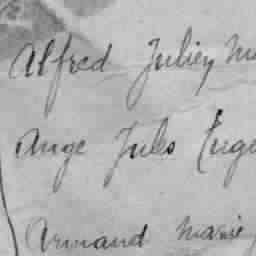 Alfred Julien Ma
Ange Jules Euge
Armand Marie